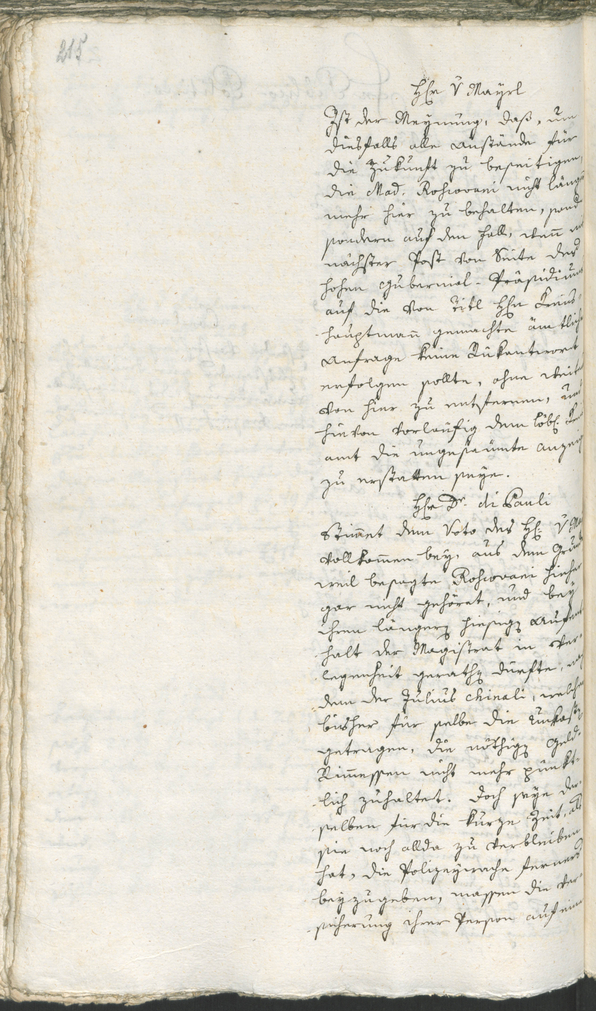 215
Hr. v Mayrl
Ist der Meynung, daß, um
diesfalls alle Anstände für
die Zukunft zu beseitigen
die Mad. Rohovani nicht läng
mehr hier zu behalten, sond
sondern auf den Fall, wenn
nächster Post von Seite des
hohen Gubernial-Präsidium
auf die von Titl Hrn Kreis
hauptmann gemachte ämtlich
Anfrage keine Rükantwort
erfolgen sollte, ohne weit
von hier zu entfernen, und
hievon vorläufig dem löbl.
amt die ungesäumte Anzeig
zu erstatten seye.
Hr. Dr. di Pauli
Stimmet dem Voto des H. v
vollkommen bey, aus dem Grund
weil besagte Rohovani hieher
gar nicht gehöret, und bey
ihrem längern hiesigen Aufent
halt der Magistrat in Ver
legenheit gerathen dürfte,
dem der Julius Chinali, welcher
bisher für selbe die Unkosten
getragen, die nöthigen Geld
Rimessen nicht mehr pünkt
lich zuhaltet. Doch seye der
selben für die kurze Zeit, als
sie noch allda zu verbleiben
hat, die Polizeywache ferners
beyzugeben, massen die Ver
sicherung ihrer Person auf eine